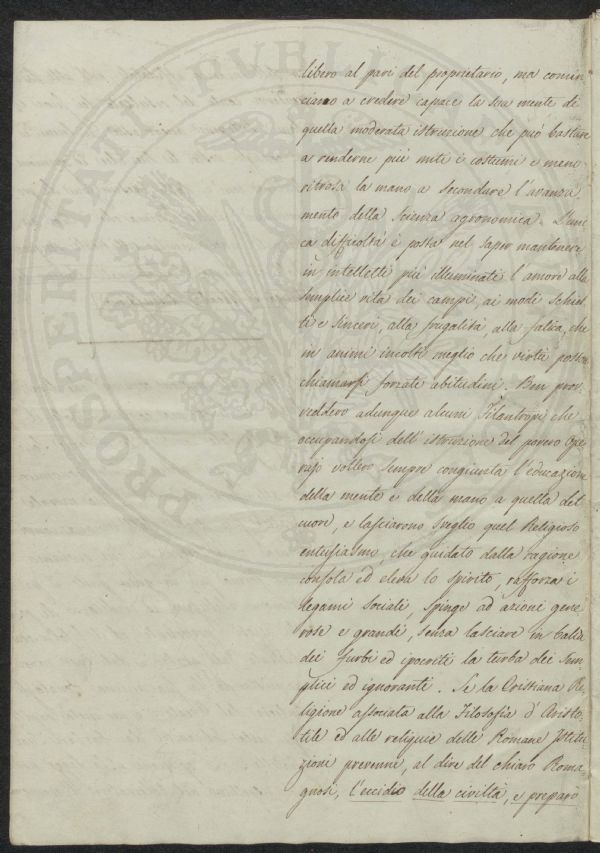 libero al pari del proprietario, ma comin
ciano a credere capace la sua mente di
quella moderata istruzione che può bastare
a renderne più miti i costumi e meno
ritrosa la mano a secondare l'avanza
mento della scienza agronomica. L'uni
ca difficoltà è posta nel saper mantenere
in intelletti più illuminati l'amore alla
semplice vita dei campi, ai modi schiet
ti e sinceri, alla frugalità, alla fatica, che
in animi incolti meglio che virtù posson
chiamarsi forzate abitudini. Ben prov
veddero adunque alcuni Filantropi che
occupandosi dell'istruzione del povero Ope
rajo vollero sempre congiunta l'educazione
della mente e della mano a quella del
cuore, e lasciarono sveglio quel Religioso
entusiasmo, che guidato dalla ragione
consola ed eleva lo spirito, rafforza i
legami sociali, spinge ad azioni gene
rose e grandi, senza lasciare in balìa
dei furbi ed ipocriti la turba dei sem
plici ed ignoranti. Se la Cristiana Re
ligione associata alla Filosofia d'Aristo
tile ed alle reliquie delle Romane Istitu
zioni prevenne, al dire del chiaro Roma
gnosi, l'eccidio della civiltà, e preparò
PROSPERITATI PVBLICAE